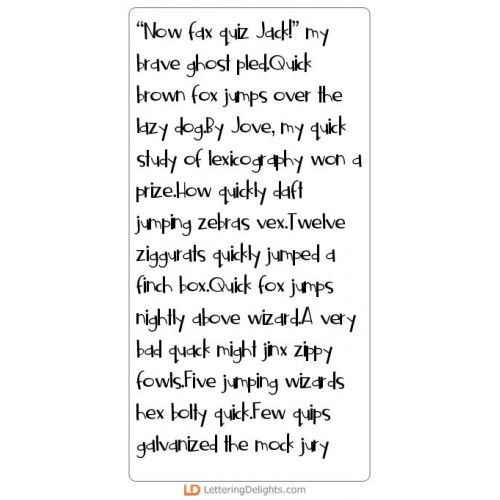 “Now fax quiz Jack!” my
brave ghost pled.Quick
brown fox jumps over the
lazy dog.By Jove, my quick
study of lexicography won a
prize.How quickly daft
jumping zebras vex.Twelve
ziggurats quickly jumped a
finch box.Quick fox jumps
nightly above wizard.A very
bad quack might jinx zippy
fowls.Five jumping wizards
hex bolty quick.Few quips
galvanized the mock jury
LD LetteringDelights.com